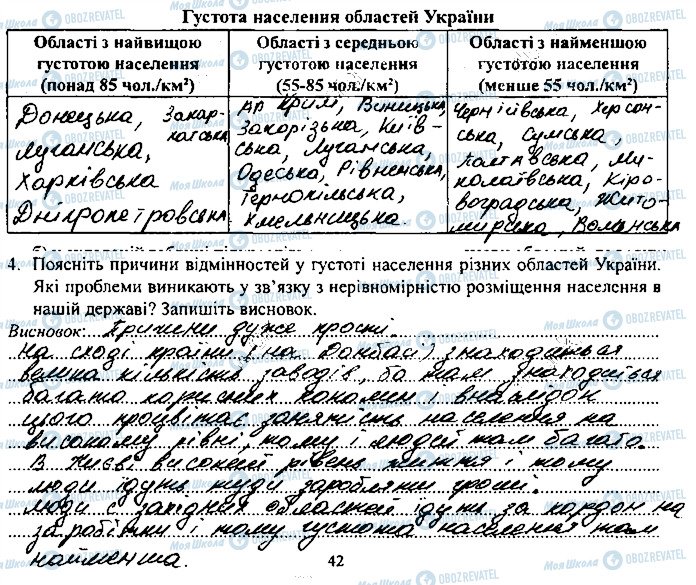 Густота населення областей України
Області з найвищою густотою населення (понад 85 чол./км²)
Області з середньою густотою населення (55-85 чол./км²)
Області з найменшою густотою населення (менше 55 чол./км²)
Донецька, Закар-
патська
Луганська,
Харківська
Дніпропетровська
АР Крим, Вінницька,
Запорізька, Київ-
ська, Луганська,
Одеська, Рівненська,
Тернопільська,
Хмельницька.
Чернігівська, Херсон-
ська, Сумська,
Полтавська, Ми-
колаївська, Кіро-
воградська, Жито-
мирська, Волинська
4. Поясніть причини відмінностей у густоті населення різних областей України.
Які проблеми виникають у зв’язку з нерівномірністю розміщення населення в
нашій державі? Запишіть висновок.
Висновок: Причини дуже прості.
На сході країни (на Донбасі) знаходиться
велика кількість заводів, бо там знаходиться
багато корисних копалин і внаслідок
цього процвітає зайнятість населення на
високому рівні, тому і людей там багато.
В Києві високий рівень життя і тому
люди їдуть туди заробляти гроші.
Люди с західних областей їдуть за кордон на
заробітки і тому густота населення там
найменша.
42